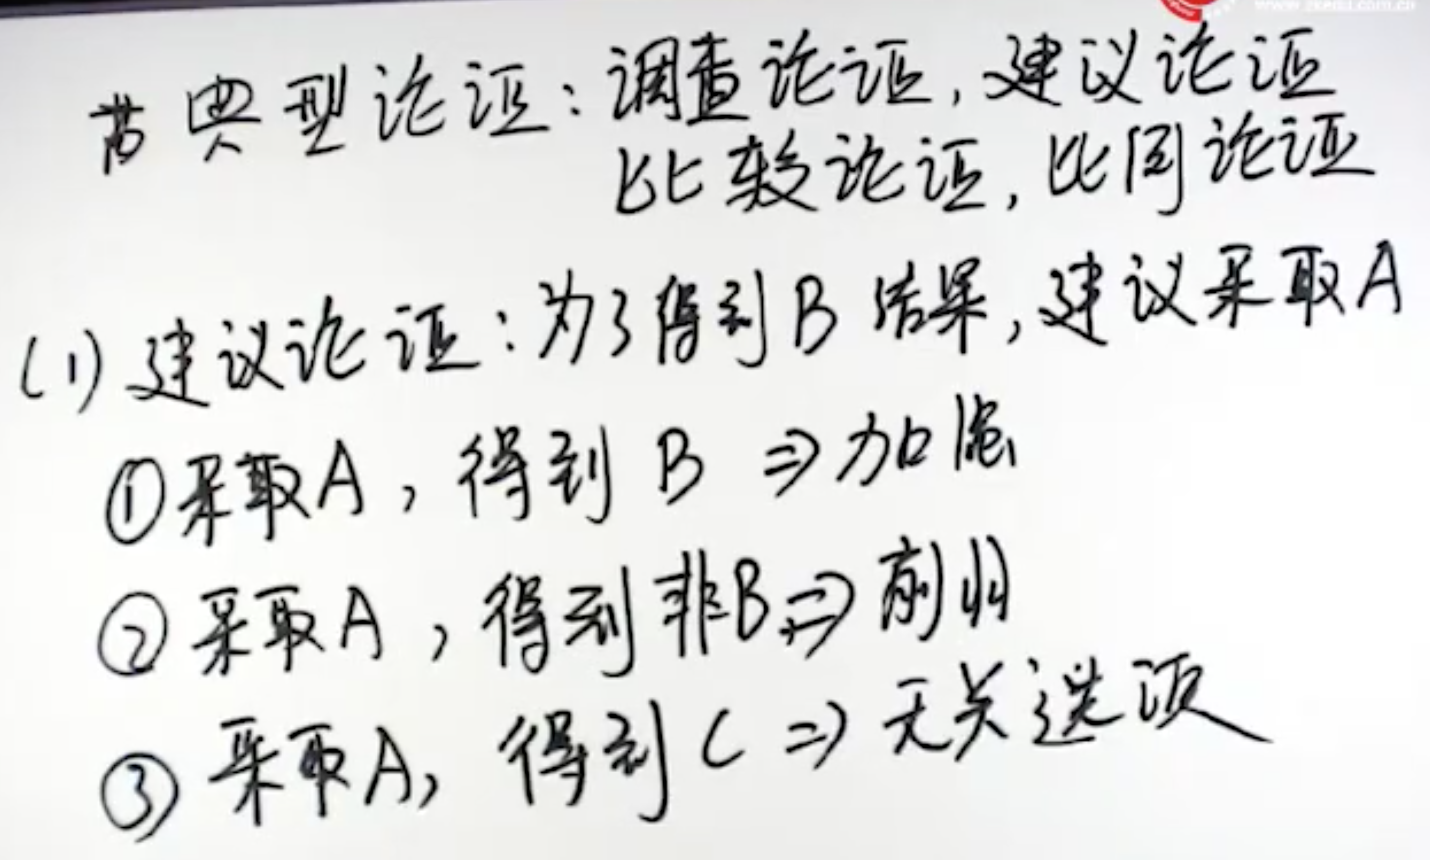 www.zkedu.com.cn
典型论证:调查论证,建议论证
比较论证,比同论证
(1)建议论证:为了得到B结果,建议采取A
①采取A,得到 B ⇒加强
②采取A,得到非B⇒削弱
③采取A,得到C⇒无关选项